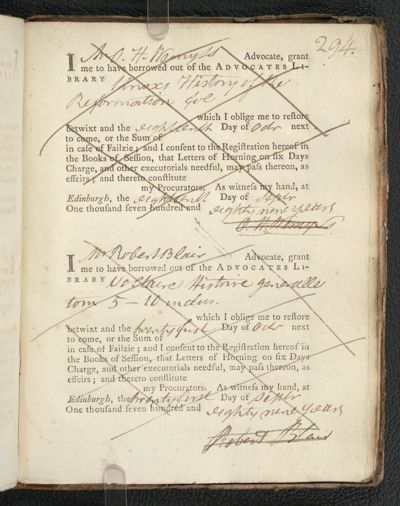 294.
I Mr O. H. Wemyss Advocate, grant
me to have borrowed out of the ADVOCATES LI-
BRARY Knoxes History of the
Reformation fol
which I oblige me to restore
betwixt and the eighteenth Day of Octr next
to come, or the Sum of
in case of Failzie; and I consent to the Registration hereof in
the Books of Session, that Letters of Horning on six Days
Charge, and other executorials needful, may pass thereon, as
effeirs; and thereto constitute
my Procurators. As witness my hand, at
Edinburgh, the eighteenth Day of Septr
One thousand seven hundred and eighty nine years
O. H. Wemyss
I Mr Robert Blair Advocate, grant
me to have borrowed out of the ADVOCATES LI-
BRARY Voltaire Histoire generalle
tom 5 - 10 inclus.
which I oblige me to restore
betwixt and the twenty first Day of Octr next
to come, or the Sum of
in case of Failzie; and I consent to the Registration hereof in
the Books of Session, that Letters of Horning on six Days
Charge, and other executorials needful, may pass thereon, as
effeirs; and thereto constitute
my Procurators. As witness my hand, at
Edinburgh, the twenty first Day of Septr
One thousand seven hundred and eighty nine years
Robert Blair